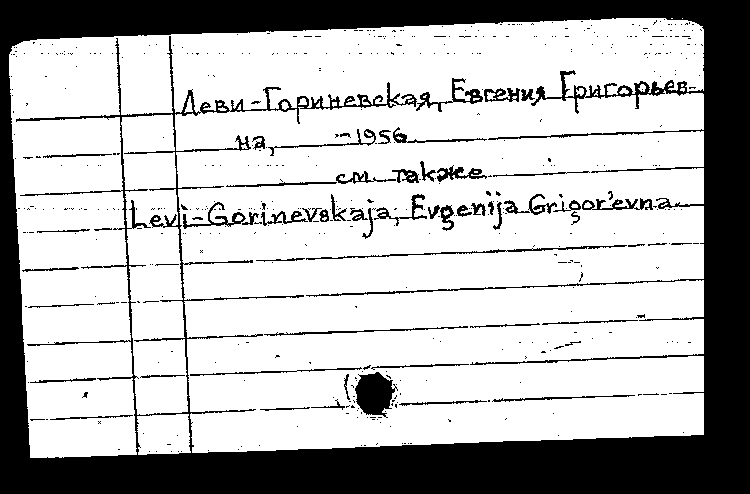 Леви-Гориневская, Евгения Григорьев-
на, -1956
см. также
Levi-Gorinevskaja, Evgenija Grigor'evna